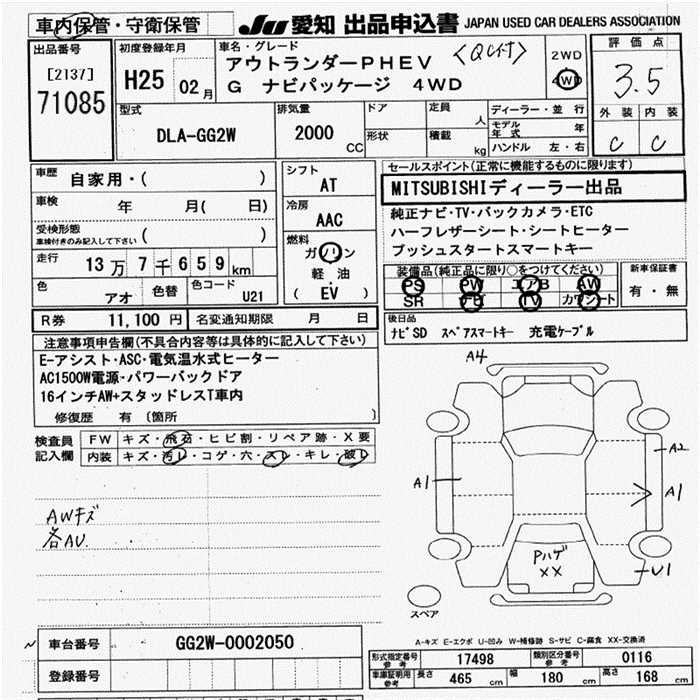 車内保管・守衛保管
JU 愛知 出品申込書 JAPAN USED CAR DEALERS ASSOCIATION
出品番号
[2137]
71085
初度登録年月
H25 02月
車名・グレード
アウトランダーPHEV 〈QC付〉
G ナビパッケージ 4WD
2WD
4WD
評価点
3.5
外装 内装
C C
型式
DLA-GG2W
排気量
2000 CC
ドア
形状
定員 人
積載 kg
ディーラー・並行
モデル年式 年
ハンドル 左・右
車歴 自家用・( )
車検 年 月( 日)
受検形態 ( )
車検付きのみ記入して下さい
走行 13万7千659km
色 アオ 色替 色コード U21
シフト
AT
冷房
AAC
燃料
ガソリン
軽油
( EV )
セールスポイント(正常に機能するものに限ります)
MITSUBISHIディーラー出品
純正ナビ・TV・バックカメラ・ETC
ハーフレザーシート・シートヒーター
プッシュスタートスマートキー
装備品(純正品に限り○をつけてください)
PS PW エアB AW
SR ナビ TV カワシート
新車保証書
有・無
R券 11,100円 名変通知期限 月 日
後日品
ナビSD スペアスマートキー 充電ケーブル
注意事項申告欄(不具合内容等は具体的に記入して下さい)
E-アシスト・ASC・電気温水式ヒーター
AC1500W電源・パワーバックドア
16インチAW+スタッドレスT車内
修復歴 有 〔箇所 〕
検査員記入欄
FW キズ・飛石・ヒビ割・リペア跡・X要
内装 キズ・汚レ・コゲ・穴・スレ・キレ・破レ
AWキズ
各AU
A4
A1
A2
A1
Pハゲ
XX
U1
スペア
A-キズ E-エクボ U-凹み W-補修跡 S-サビ C-腐食 XX-交換済
車台番号 GG2W-0002050
登録番号
形式指定番号 参考 17498 類別区分番号 参考 0116
車庫証明用 参考 長さ 465 cm 幅 180 cm 高さ 168 cm